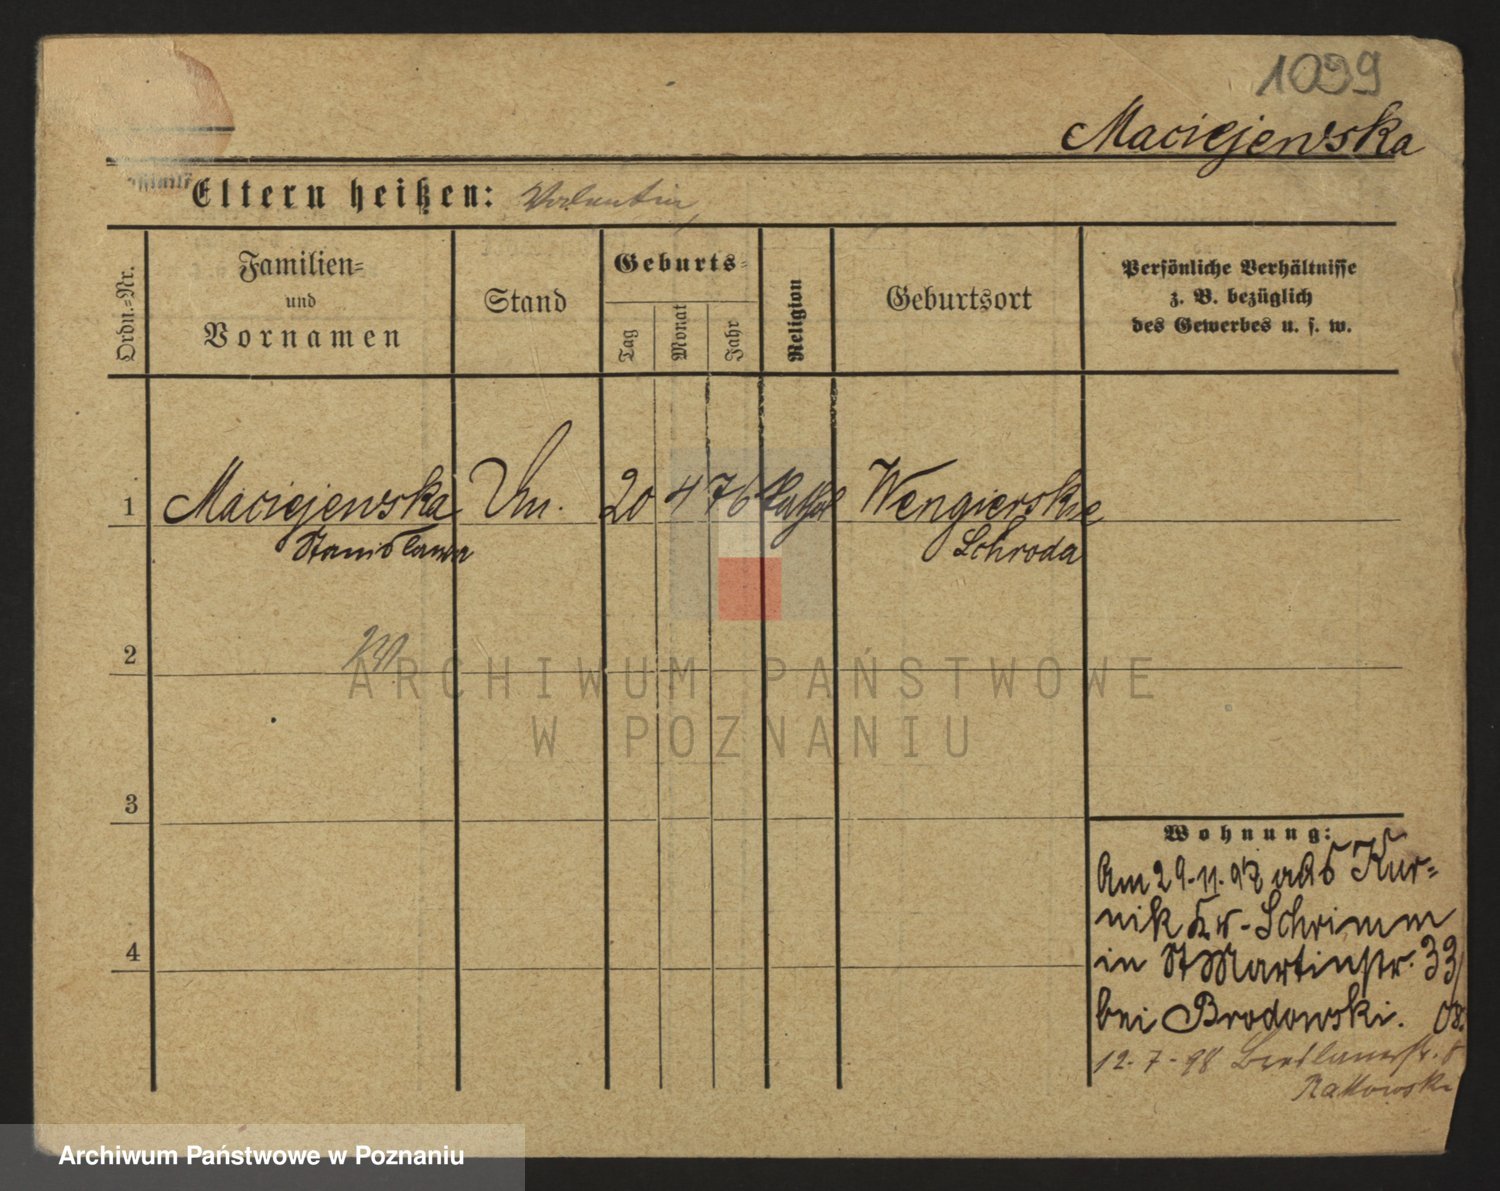 1099
Maciejewska
Eltern heißen: Valentin,
Ordn.-Nr.
Familien-
und
Vornamen
Stand
Geburts-
Tag
Monat
Jahr
Religion
Geburtsort
Persönliche Verhältnisse
z. B. bezüglich
des Gewerbes u. s. w.
1
Maciejewska
Stanislawa
20
4
76
Kathol
Wengierskie
Schroda
2
3
4
Wohnung:
Am 29.11.97 aus Kur=
nik Kr. Schrimm
in St Martinstr. 33/
bei Brodowski.
12.-7-98
Ratkowski
ARCHIWUM PAŃSTWOWE
W POZNANIU
Archiwum Państwowe w Poznaniu